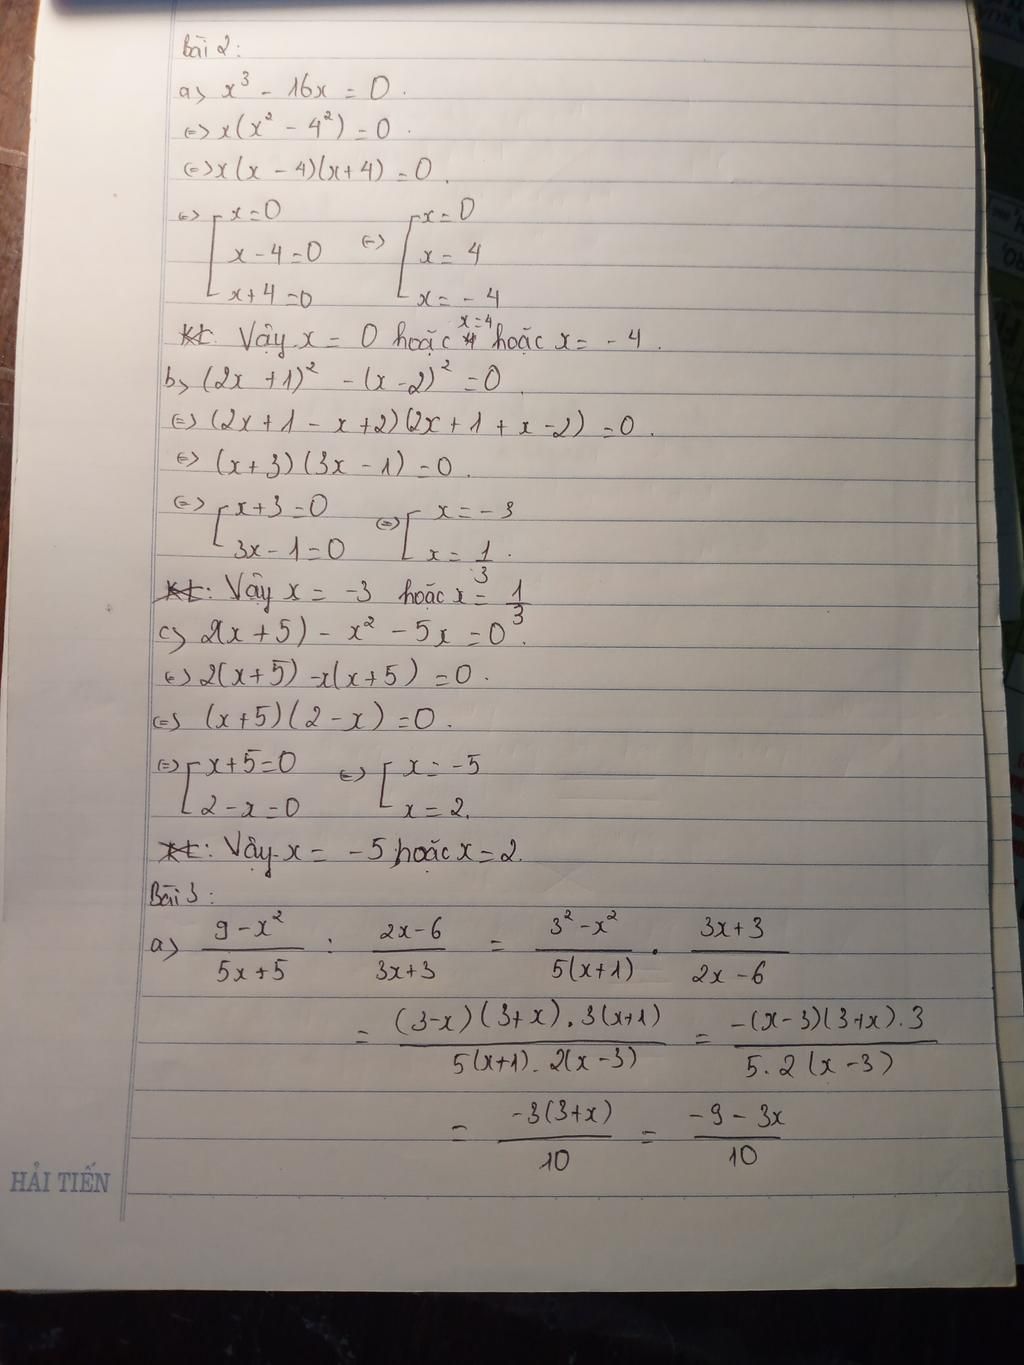 Bài 2:
a) x³ - 16x = 0.
⇔ x(x² - 4²) = 0.
⇔ x(x - 4)(x + 4) = 0.
⇔ [ x = 0 ⇔ [ x = 0
x - 4 = 0 x = 4
x + 4 = 0 x = - 4
Vậy x = 0 hoặc x = 4 hoặc x = - 4.
b) (2x + 1)² - (x - 2)² = 0.
⇔ (2x + 1 - x + 2)(2x + 1 + x - 2) = 0.
⇔ (x + 3)(3x - 1) = 0.
⇔ [ x + 3 = 0 ⇔ [ x = - 3
3x - 1 = 0 x = 1/3.
Vậy x = -3 hoặc x = 1/3
c) 2(x + 5) - x² - 5x = 0.
⇔ 2(x + 5) - x(x + 5) = 0.
⇔ (x + 5)(2 - x) = 0.
⇔ [ x + 5 = 0 ⇔ [ x = -5
2 - x = 0 x = 2.
Vậy x = -5 hoặc x = 2.
Bài 3:
a) (9 - x²)/(5x + 5) : (2x - 6)/(3x + 3) = (3² - x²)/(5(x + 1)) . (3x + 3)/(2x - 6)
= ((3 - x)(3 + x).3(x + 1))/(5(x + 1).2(x - 3)) = (-(x - 3)(3 + x).3)/(5.2(x - 3))
= (-3(3 + x))/10 = (-9 - 3x)/10
HẢI TIẾN